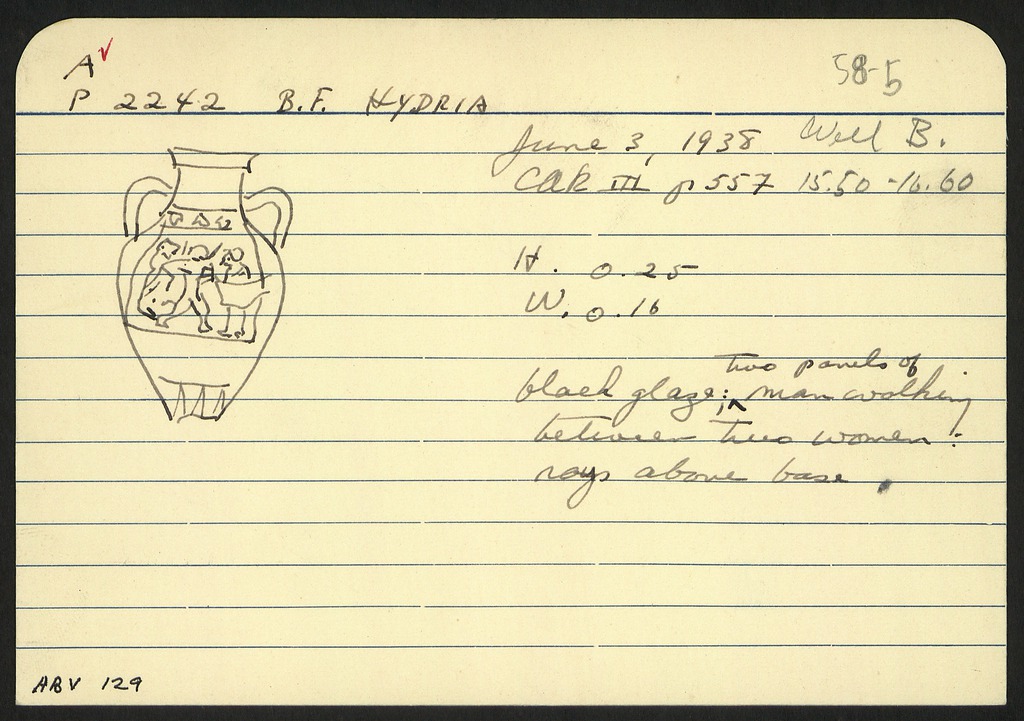 A✓
58-5
P 2242 B.F. HYDRIA
June 3, 1938 Well B.
COR III p 557 15.50-16.60
H. 0.25
W. 0.16
two panels of
black glaze; ^ man walking
between two women:
rays above base.
ABV 129